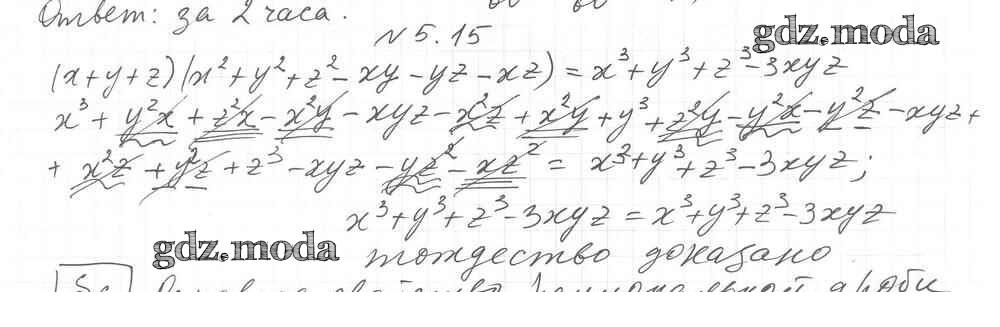 Ответ: за 2 часа.
№ 5.15
gdz.moda
(x+y+z)(x²+y²+z²-xy-yz-xz)=x³+y³+z³-3xyz
x³+y²x+z²x-x²y-xyz-x²z+x²y+y³+z²y-y²x-y²z-xyz+
+x²z+y²z+z³-xyz-yz²-xz²=x³+y³+z³-3xyz;
x³+y³+z³-3xyz=x³+y³+z³-3xyz
gdz.moda
тождество доказано